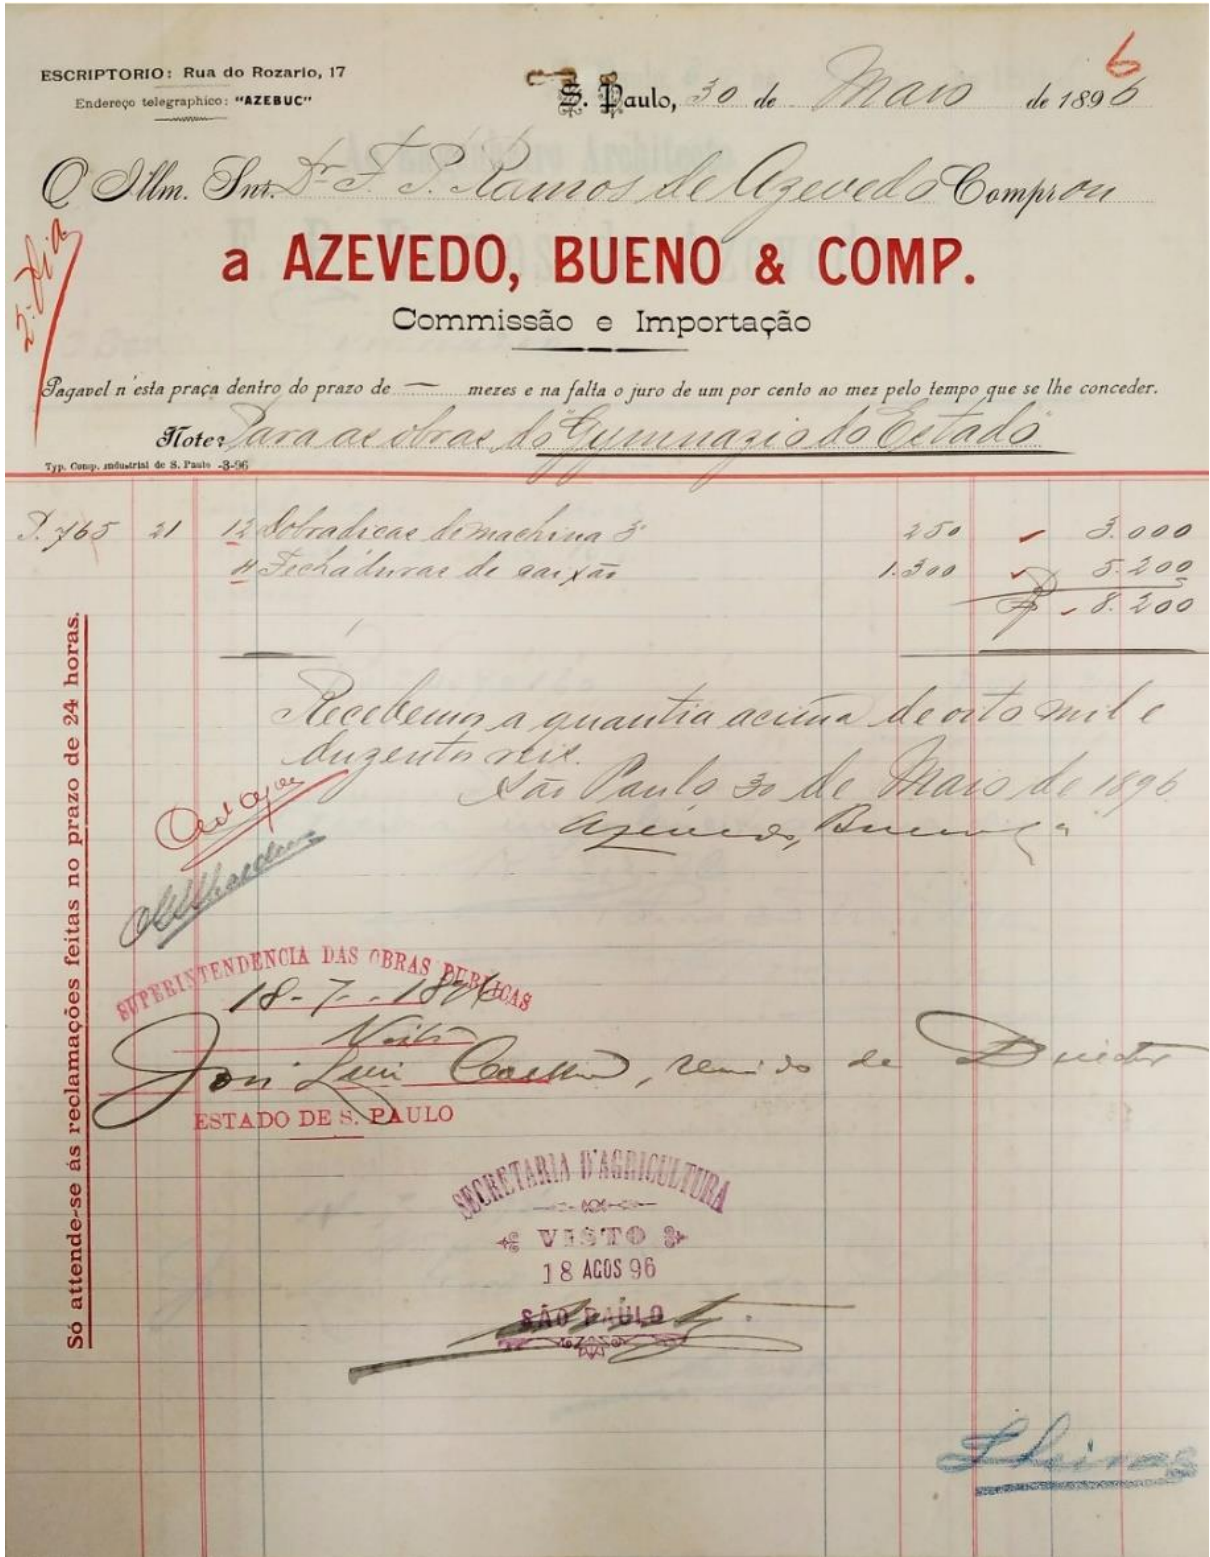 6
ESCRIPTORIO: Rua do Rozario, 17
Endereço telegraphico: "AZEBUC"
S. Paulo, 30 de Maio de 1896
O Illm. Snr. Dr F. P. Ramos de Azevedo Comprou
a AZEVEDO, BUENO & COMP.
Commissão e Importação
2ª Via
Pagavel n'esta praça dentro do prazo de — mezes e na falta o juro de um por cento ao mez pelo tempo que se lhe conceder.
Note: Para as obras do Gymnazio do Estado
Typ. Comp. industrial de S. Paulo -3-96
P. 765 21 12 Dobradicas de machina 3" 250 3.000
4 Fechaduras de caixão 1.300 5.200
8.200
Recebemos a quantia acima de oito mil e
duzentos reis.
São Paulo 30 de Maio de 1896
Azevedo, Bueno
Só attende-se ás reclamações feitas no prazo de 24 horas.
SUPERINTENDENCIA DAS OBRAS PUBLICAS
18-7-1896
Visto
José Luiz Coelho, servindo de Director
ESTADO DE S. PAULO
SECRETARIA D'AGRICULTURA
VISTO
18 AGOS 96
SÃO PAULO